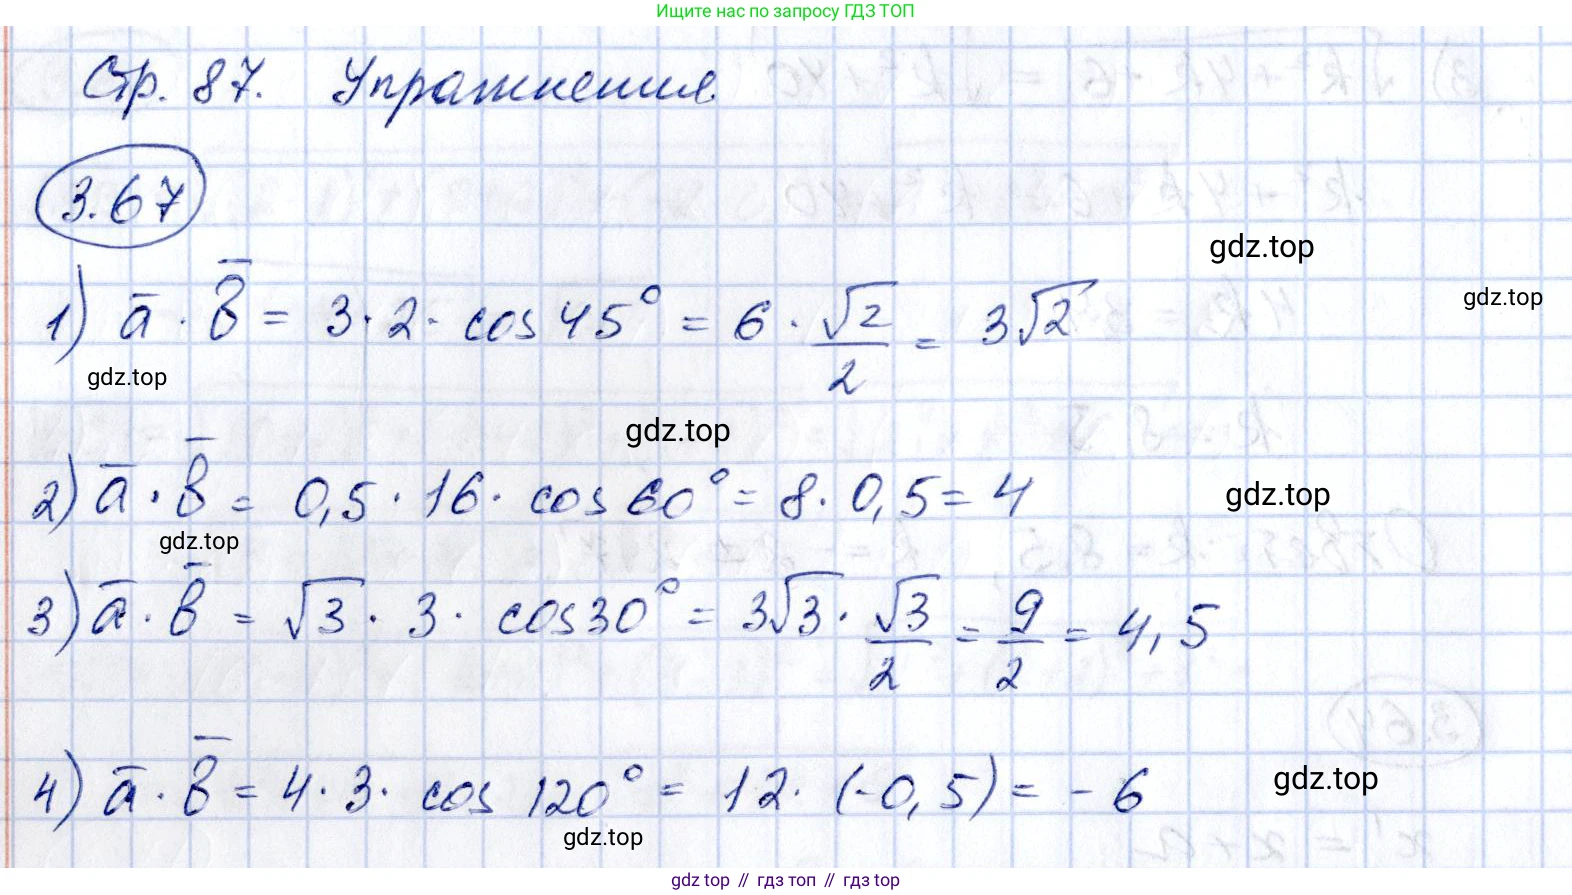 Ищите нас по запросу ГДЗ ТОП
Стр. 87. Упражнения.
3.67
gdz.top
gdz.top
1) a̅ · b̅ = 3 · 2 · cos 45° = 6 · √2/2 = 3√2
gdz.top
gdz.top
2) a̅ · b̅ = 0,5 · 16 · cos 60° = 8 · 0,5 = 4
gdz.top
gdz.top
3) a̅ · b̅ = √3 · 3 · cos 30° = 3√3 · √3/2 = 9/2 = 4,5
4) a̅ · b̅ = 4 · 3 · cos 120° = 12 · (-0,5) = - 6
gdz.top
gdz.top
gdz top // гдз топ // гдз top